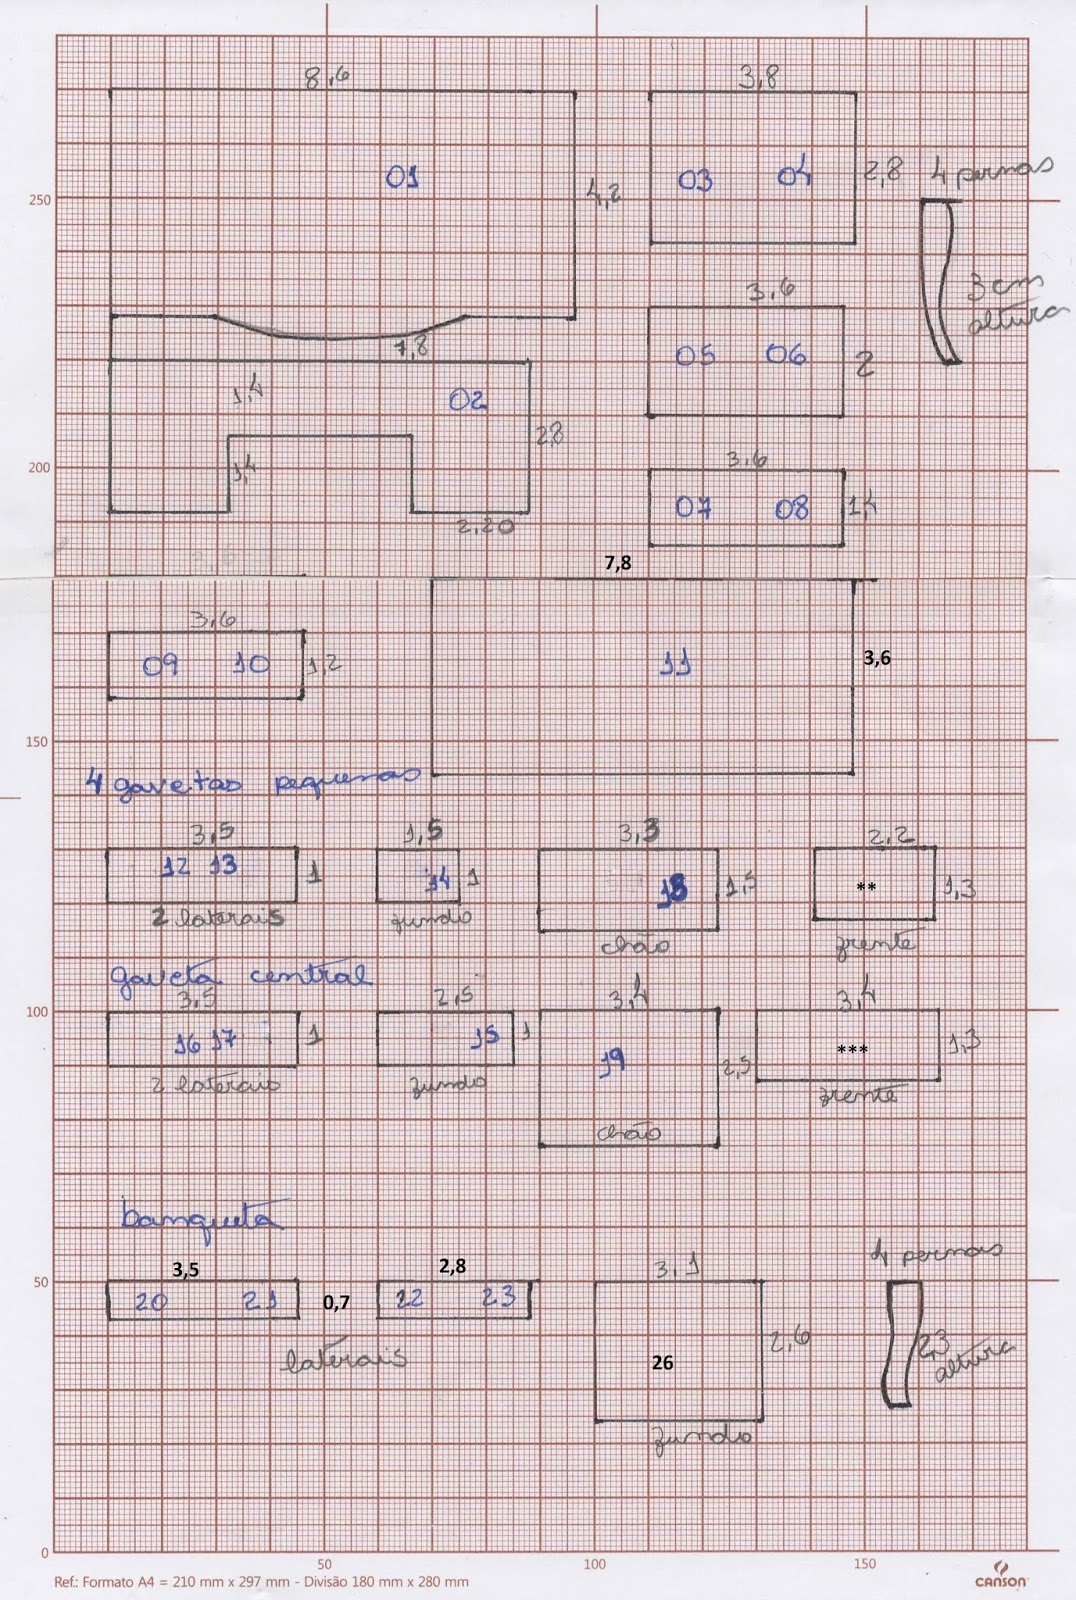 8,6
3,8
01
03 04
2,8
4 pernas
4,2
250
3,6
3 cm
altura
7,8
05 06
2
1,4
02
2,8
200
1,4
3,6
07 08
1,4
2,20
3,6
7,8
3,6
09 10
1,2
11
3,6
150
4 gavetas pequenas
3,5
1,5
3,3
2,2
12 13
1
14
1
18
1,5
**
1,3
2 laterais
fundo
chão
frente
gaveta central
3,5
2,5
3,4
3,4
100
16 17
1
15
1
19
2,5
***
1,3
2 laterais
fundo
chão
frente
banqueta
3,5
2,8
3,1
4 pernas
50
20 21
0,7
22 23
26
2,6
2,3
altura
laterais
fundo
0
50
100
150
Ref.: Formato A4 = 210 mm x 297 mm - Divisão 180 mm x 280 mm
CANSON